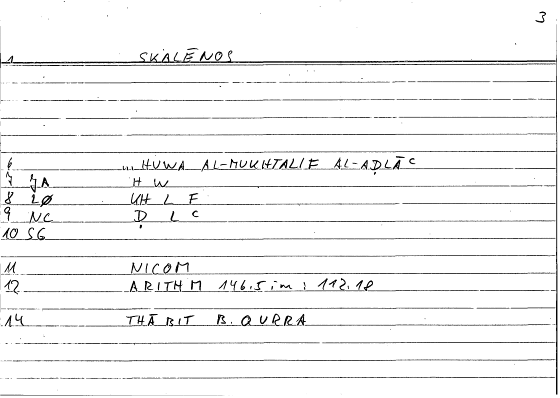 3
1 SKALĒNOS
6 ... HUWA AL-MUKHTALIF AL-AḌLĀC
7 JA H W
8 LØ KH L F
9 NC Ḍ L C
10 SG
11 NICOM
12 ARITHM 146.5 im : 112.18
14 THĀBIT B. QURRA